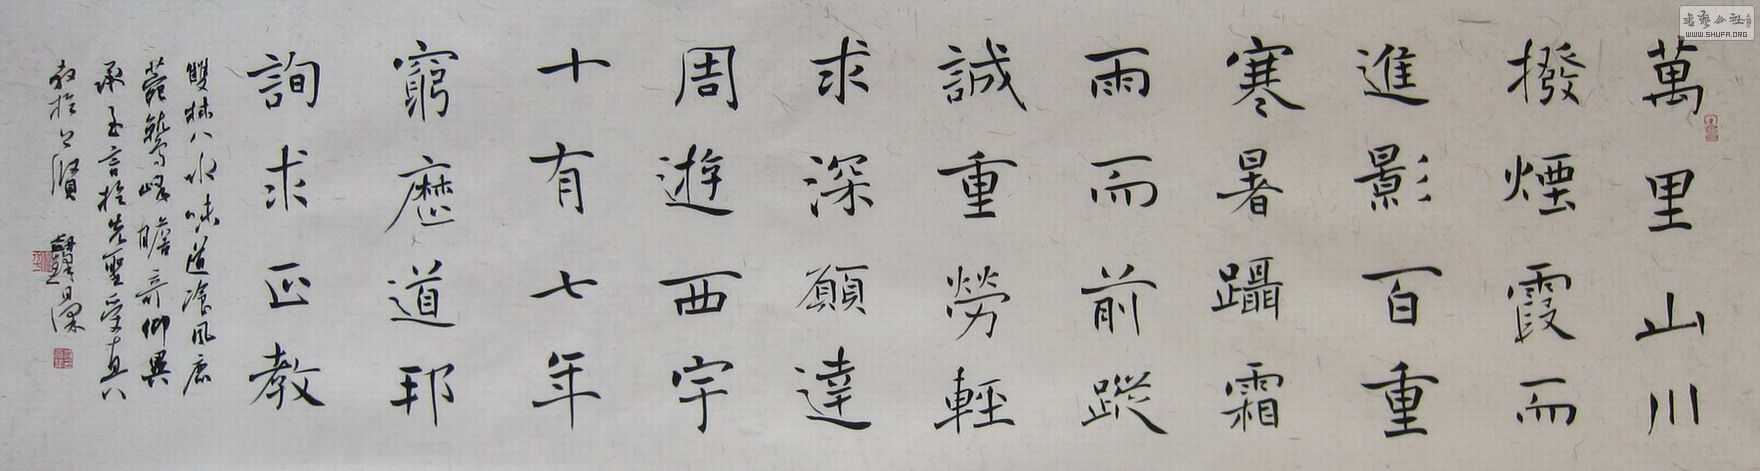 萬里山川
撥煙霞而
進影百重
寒暑躡霜
雨而前蹤
誠重勞輕
求深願達
周遊西宇
十有七年
窮歷道邦
詢求正教
雙林八水味道飡風鹿
菀鷲峰瞻奇仰異
承至言於先聖受真
教於上賢
書藝公社
WWW.SHUFA.ORG